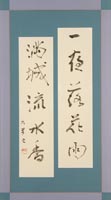 一夜落花雨
満城流水香